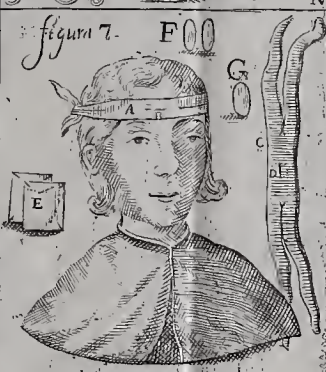 figura 7.
F
G
A
B
C
D
E